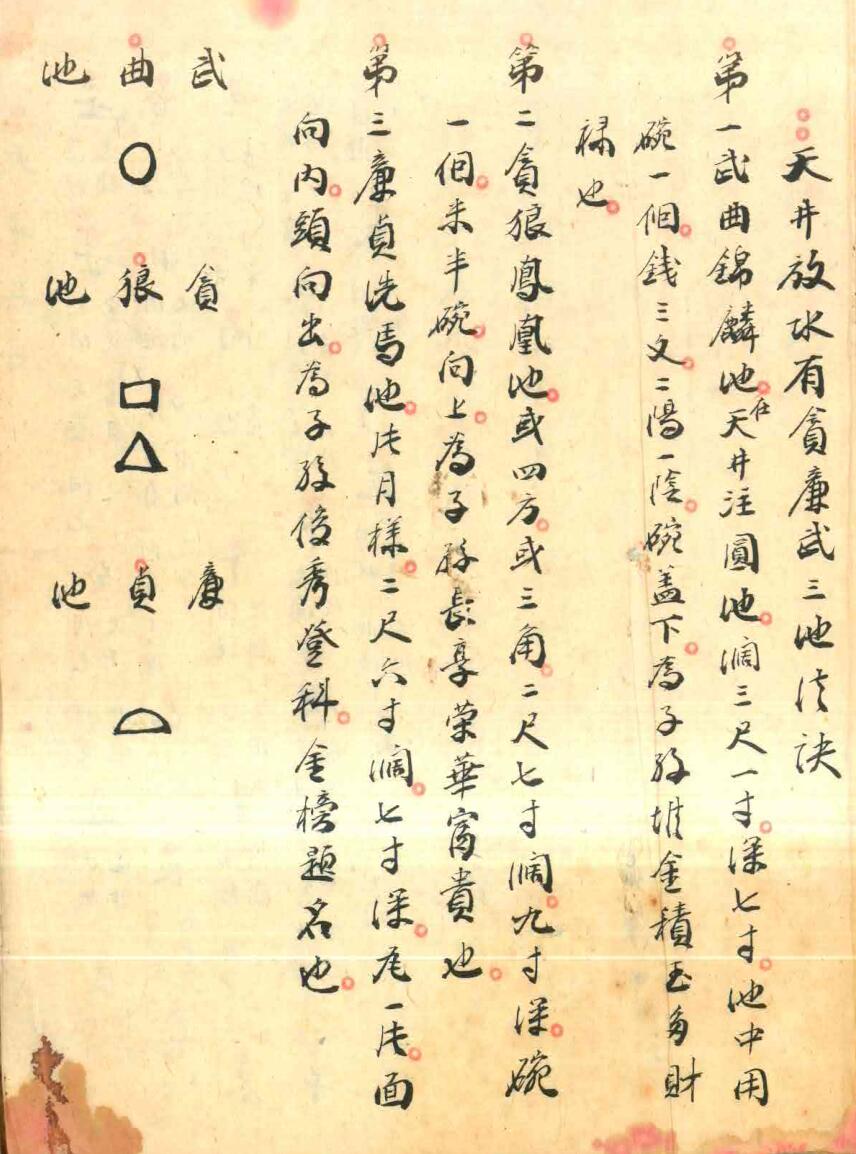 天井放水有貪廉武三池法訣
第一武曲錦麟池在天井注圓池濶三尺一寸深七寸池中用
碗一個錢三文二陽一陰碗盖下為子孫堆金積玉多財
祿也
第二貪狼鳳凰池或四方或三角二尺七寸濶九寸深碗
一個米半碗向上為子孫長享荣華富貴也
第三廉貞洗馬池法月樣二尺六寸濶七寸深瓦一法面
向内頭向出為子孫俊秀登科金榜题名也
武曲池
貪狼池
廉貞池